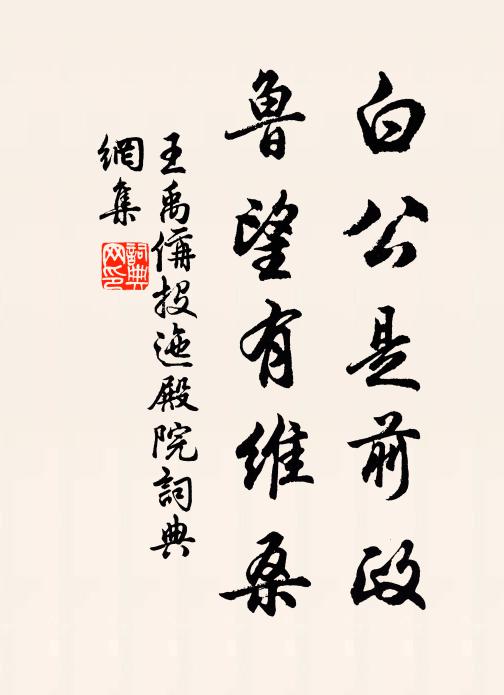 白公是前政
魯望有維桑
王禹偁投迹殿院詞典
網集
詞典網印